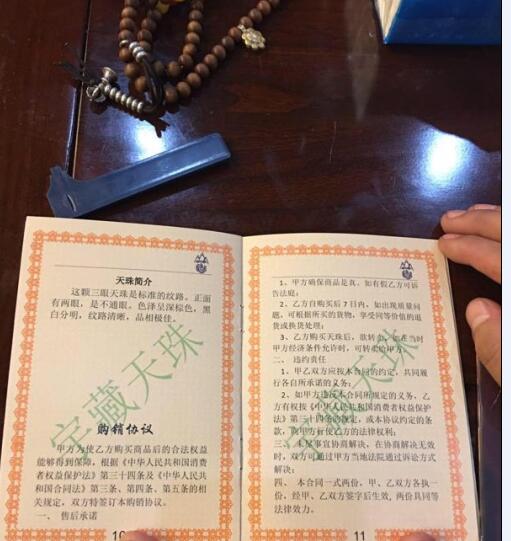 天珠简介
这颗三眼天珠是标准的纹路。正面
有两眼，是不通眼。色泽呈深棕色，黑
白分明，纹路清晰，品相极佳。
宝藏天珠
购销协议
甲方为使乙方购买商品后的合法权益
能够得到保障，根据《中华人民共和国消费
者权益保护法》第三十四条及《中华人民共
和国合同法》第三条、第四条、第五条的相
关规定，双方特签订本购销协议。
一、 售后承诺
10
1、甲方确保商品是真，如有假乙方可诉
告法庭；
2、乙方自购买后7日内，如出现质量问
题，可根据所买的货物，享受同等价值的退
货或换货处理；
3、乙方购买天珠后，欲转卖，如在当时
甲方经济条件允许时，可转卖给甲方。
二、 违约责任
1、甲乙双方应按本合同的约定，共同履
行各自所承诺的义务；
2、如甲方违反本合同所规定的义务，乙
方有权按《中华人民共和国消费者权益保护
法》第三十四条的规定，或本协议约定的条
款，向甲方行使乙方的法律权利。
三、本尽事宜协商解决，在协商解决无效
时，双方可通过甲方当地法院通过诉讼方式
解决；
四、 本合同一式两份，甲、乙双方各执一
份，经甲、乙双方签字后生效，两份具同等
法律效力。
宝藏天珠
11